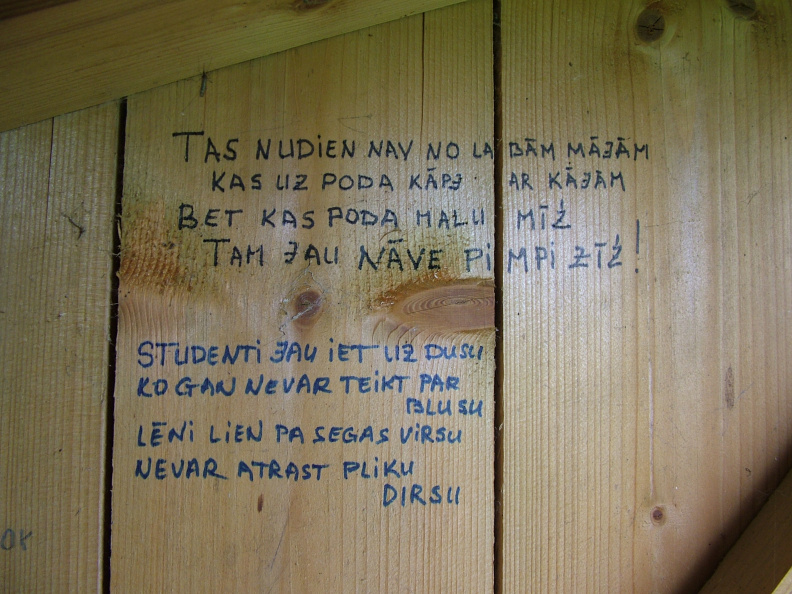 TAS NUDIEN NAV NO LABĀM MĀJĀM
KAS UZ PODA KĀPJ AR KĀJĀM
BET KAS PODA MALU MĪŽ
TAM JAU NĀVE PIMPI ZĪŽ!
STUDENTI JAU IET UZ DUSU
KO GAN NEVAR TEIKT PAR
BLUSU
LĒNI LIEN PA SEGAS VIRSU
NEVAR ATRAST PLIKU
DIRSU